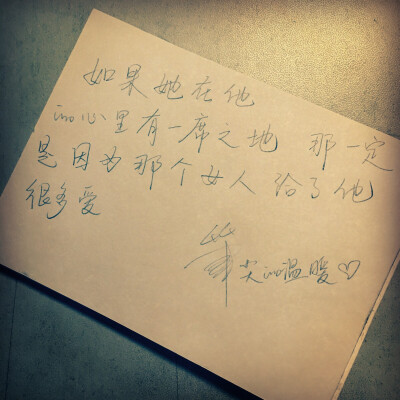 如果她在他
的心里有一席之地 那一定
是因为那个女人给了他
很多爱
笔尖的温暖♡